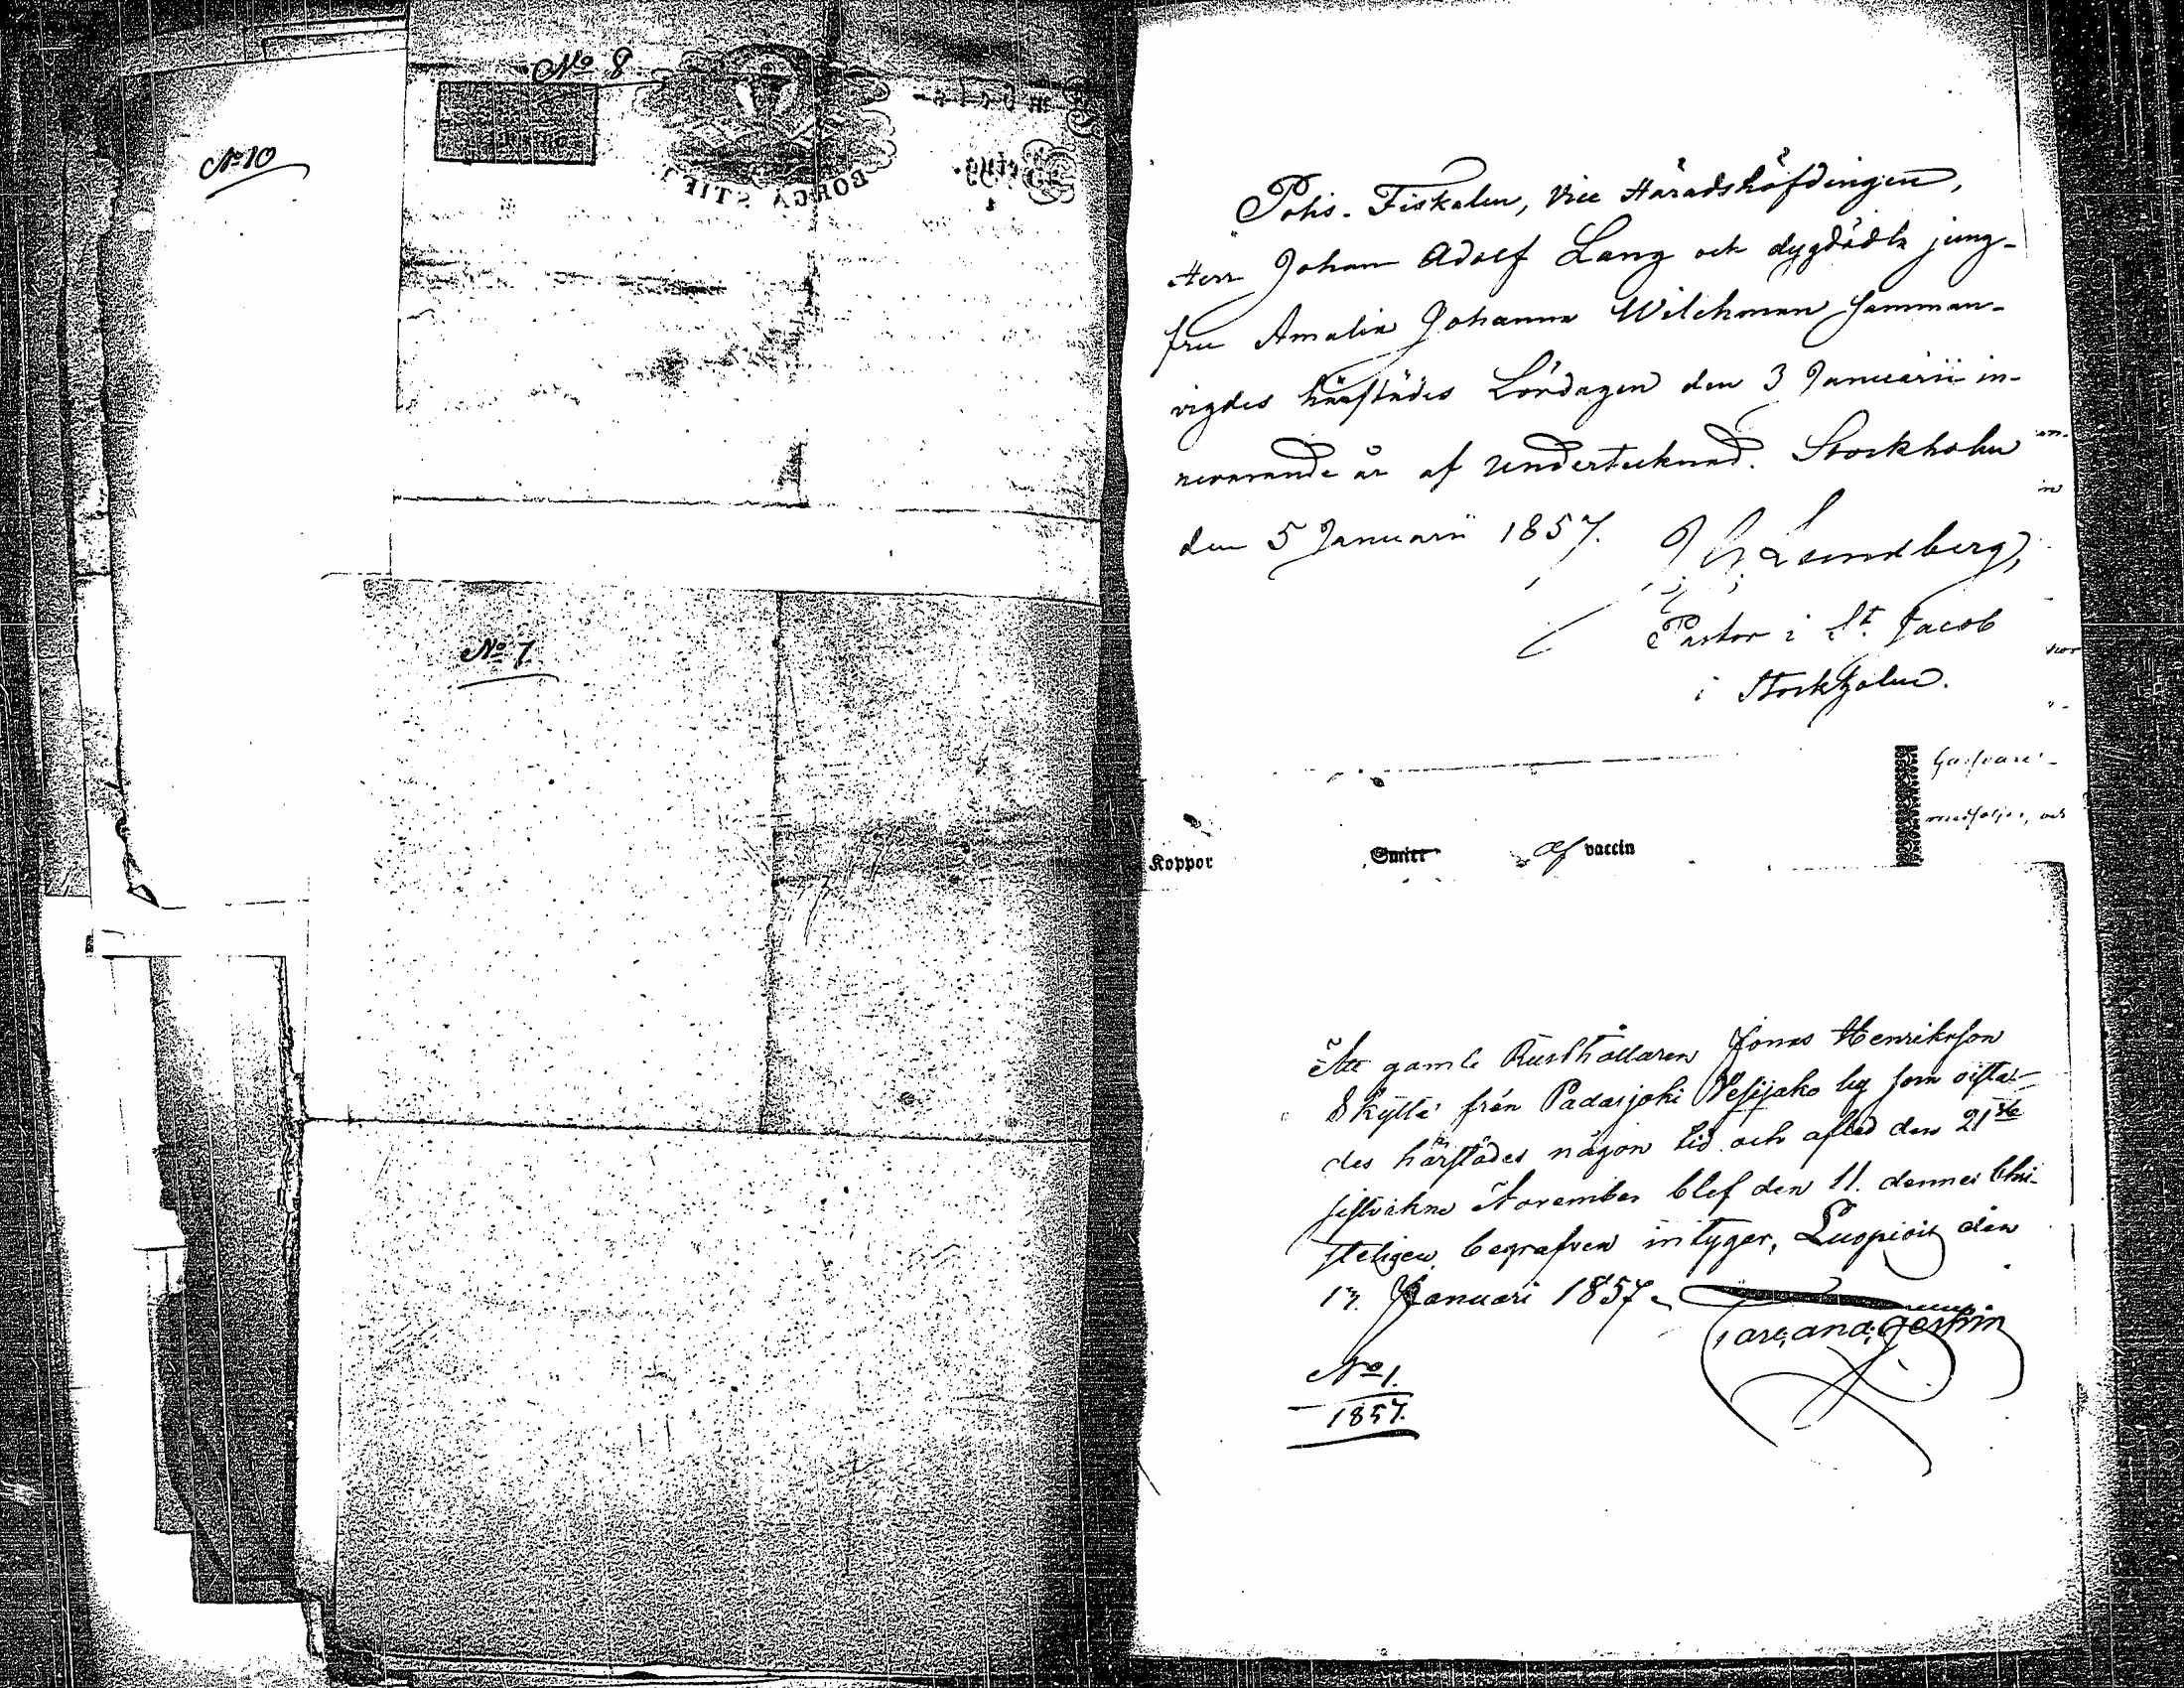 No 8
No 10
BORGÅ STIFT
No 7
Polis-Fiskalen, Vice Häradshöfdingen,
Herr Johan Adolf Lang och dygdädla jung-
fru Amalia Johanna Wilckman samman-
vigdes härstädes Lördagen den 3 Januarii in-
nevarande år af undertecknad. Stockholm
den 5 Januarii 1857.
Lundberg,
Pastor i St. Jacob
i Stockholm.
medföljer, och
Koppor
af vaccin
Att gamle Rusthållaren Jonas Henriksson
Skyttä från Padasjoki Vesijako by som vista-
des härstädes någon tid och afled den 21ste
sistvikne November blef den 11. dennes Chri-
steligen begrafven intygar, Luopiois den
13. Januari 1857.
No 1.
1857.